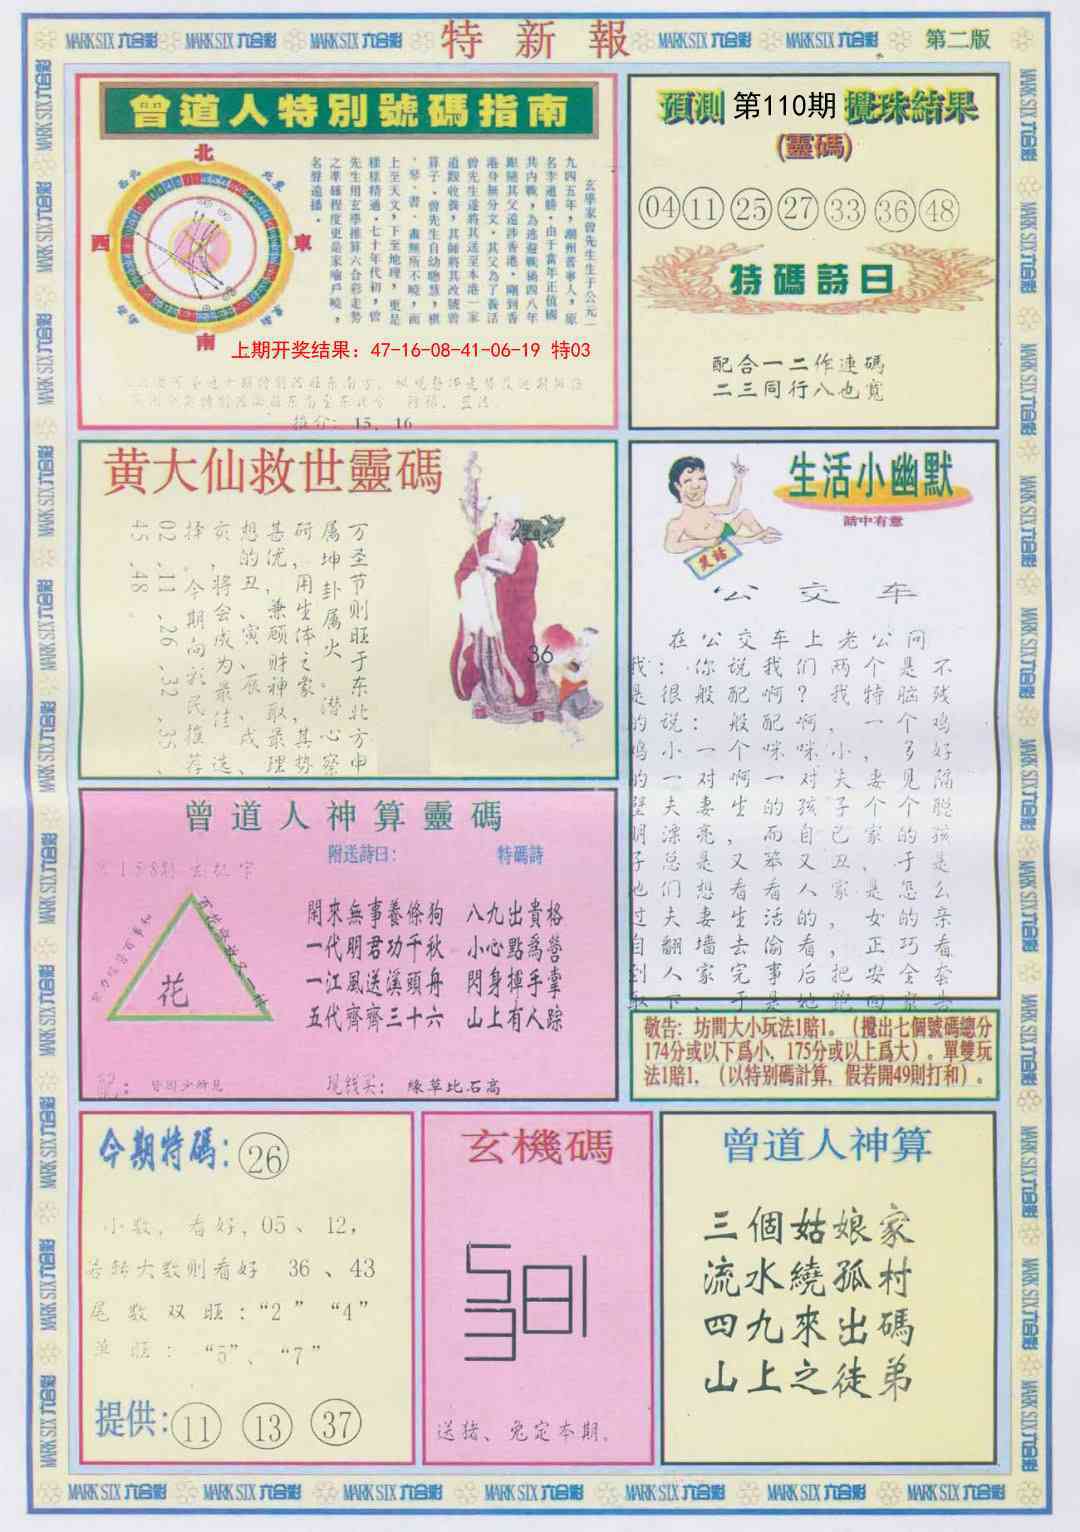 MARK SIX 六合彩 MARK SIX 六合彩 MARK SIX 六合彩 特新報 MARK SIX 六合彩 MARK SIX 六合彩 第二版
曾道人特別號碼指南
北
西北
東北
西
東
南
玄學家曾先生生于公元一
九四五年，潮州普寧人，原
名李道勝，由于當年正值國
共内戰，為逃避戰禍四八年
跟隨其父遠涉香港，剛到香
港身無分文，其父為了養活
曾先生遂將其送至本港一家
道觀收養，其師將其改號曾
算子。曾先生自幼聰慧，棋
、琴、書、畫無所不曉，而
上至天文，下至地理，更是
樣樣精通，七十年代初，曾
先生用玄學推算六合彩走勢
之準確程度更是家喻戶曉，
名聲遠播。
上期开奖结果：47-16-08-41-06-19 特03
推介：15、16
預測 第110期 攪珠結果
(靈碼)
04 11 25 27 33 36 48
特碼詩曰
配合一二作連碼
二三同行八也寬
黄大仙救世靈碼
万圣节则旺于东北方申
属坤卦属火。潜心察
研，用生体之象，其势
甚优，兼顾财神取最理
想的丑、寅、辰、戌、
亥，将会成为最佳选
择。今期向彩民推荐
02、11、26、32、35、
45、48
36
生活小幽默
話中有意
笑話
公交车
在公交车上老公问
我：你说我们两个是不
是很般配啊？我特脑残
的说：般配啊，一个鸡
鸡小一个咪咪小，多好
的一对啊一对夫妻见隔
壁夫妻生的孩子个个聪
明漂亮，而自己家的孩
子总是又笨又丑，于是
也们想看看人家是怎么
过夫妻生活的，女的亲
自翻墙去偷看，正巧看
到人家完事后把安全套
取下，于是她跑回家告
曾道人神算靈碼
158期 玄机字
附送詩曰：
特碼詩
花
閑來無事養條狗 八九出貴格
一代明君功千秋 小心點爲營
一江風送溪頭舟 閃身揮手掌
五代齊齊三十六 山上有人踪
配：皆因少所見
现钱买：緣草比石高
敬告：坊間大小玩法1賠1。（攪出七個號碼總分
174分或以下爲小，175分或以上爲大）。單雙玩
法1賠1，（以特别碼計算，假若開49則打和）。
今期特碼：26
小数，看好，05、12，
若转大数则看好 36、43
尾数双旺：“2” “4”
单旺：“5”、“7”
提供：11 13 37
玄機碼
送猪、兔定本期。
曾道人神算
三個姑娘家
流水繞孤村
四九來出碼
山上之徒弟
MARK SIX 六合彩 MARK SIX 六合彩 MARK SIX 六合彩 MARK SIX 六合彩 MARK SIX 六合彩 MARK SIX 六合彩 MARK SIX 六合彩